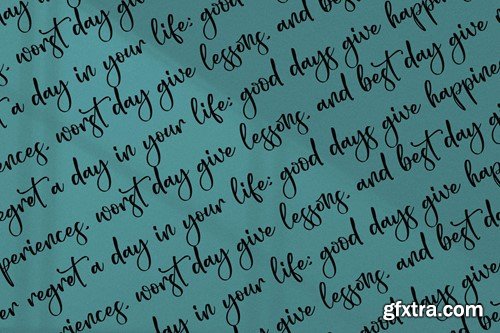 a day in your life: good
s. worst day give lessons. and best
regret a day in your life: good days give happin
iences. worst day give lessons. and best day give
regret a day in your life: good days give happines
periences. worst day give lessons. and best day g
er regret a day in your life: good days give happ
eriences. worst day give lessons. and best d
day in your life: good days give
gfxtra.com